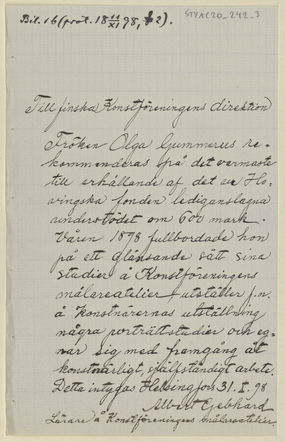 Bil. 16 (prot. 18 11/XI 98, § 2).
STYAC20_242_3
Till finska Konstföreningens direktion
Fröken Olga Gummerus re-
kommenderas på det varmaste
till erhållande af det ur Ho-
vingska fonden lediganslagna
understödet om 600 mark.
Våren 1898 fullbordade hon
på ett glänsande sätt sina
studier å Konstföreningens
målareatelier, utställer f.n.
å Konstnärernas utställning
några porträttstudier och eg-
nar sig med framgång åt
konstnärligt, själfständigt arbete.
Detta intygas Helsingfors 31. X. 98
Albert Gebhard
Lärare å Konstföreningens målareatelier.